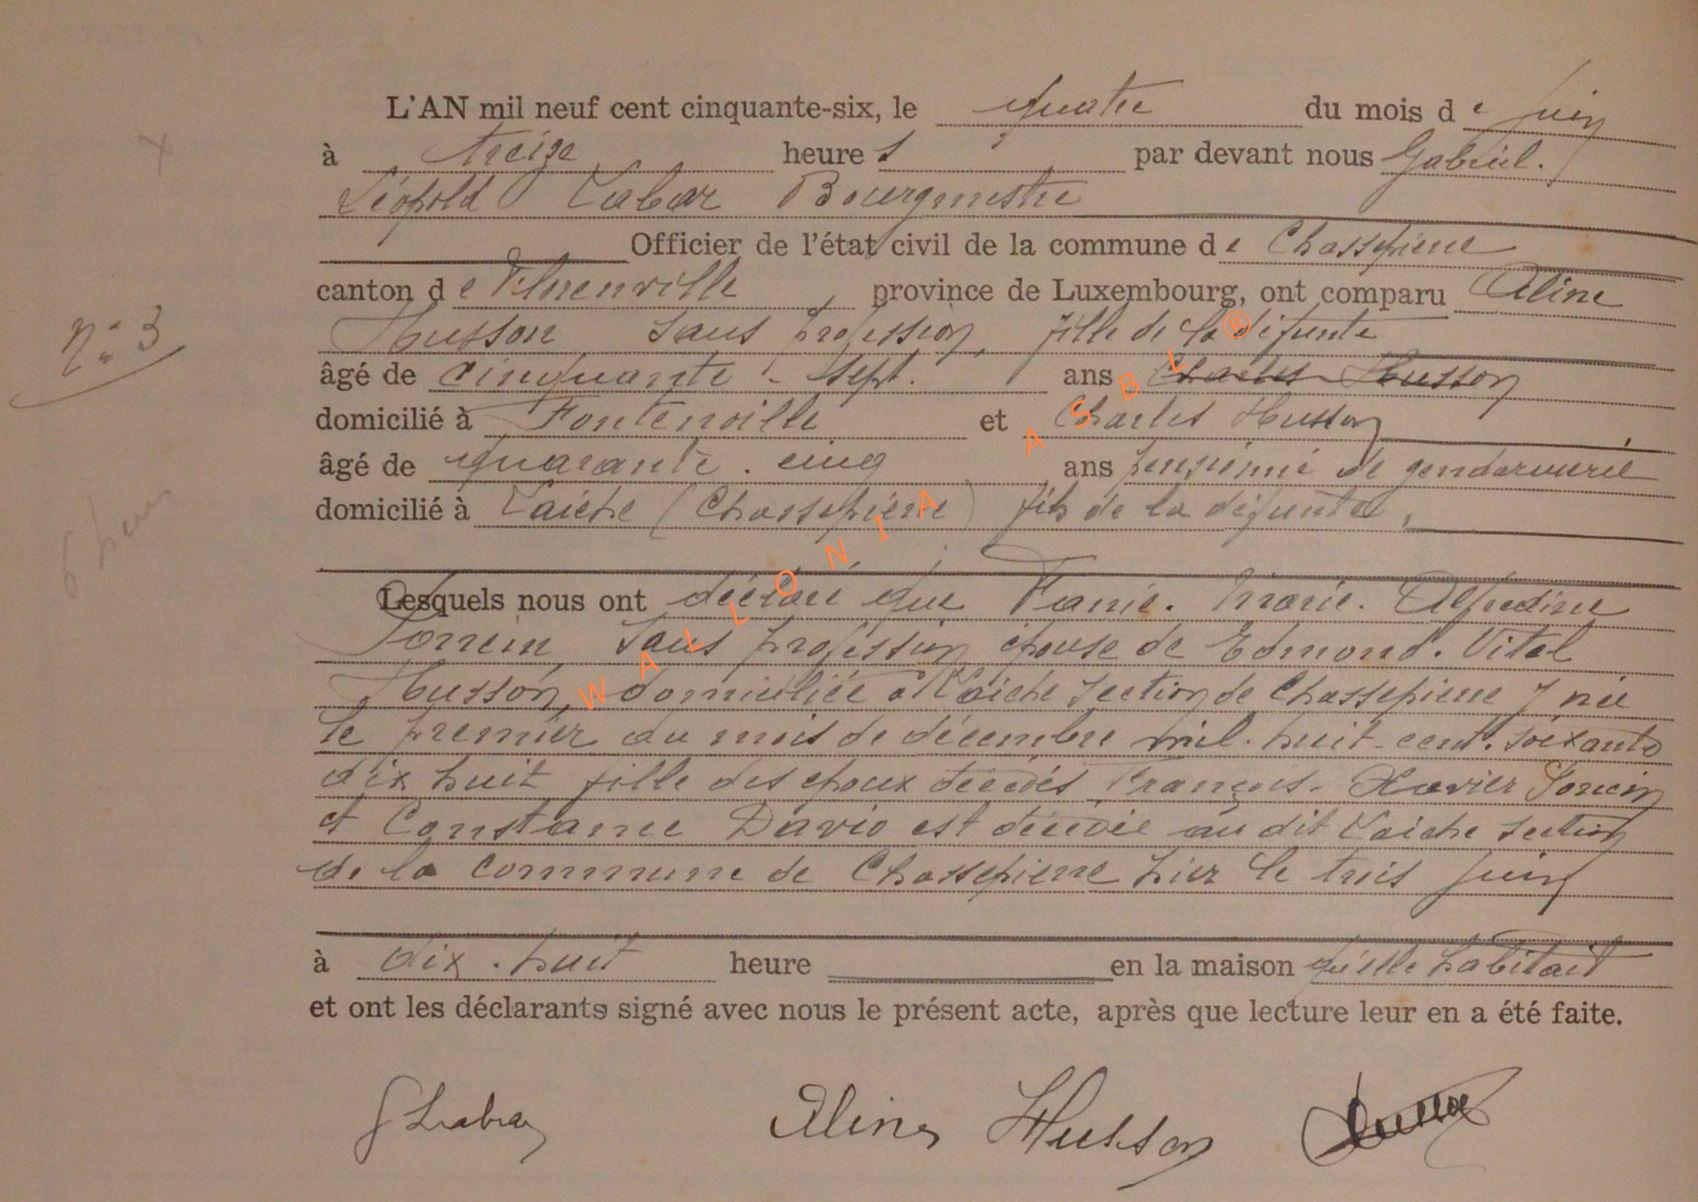 L'AN mil neuf cent cinquante-six, le quatre du mois de juin
à treize heures par devant nous Gabriel.
Léopold Labar Bourgmestre
Officier de l'état civil de la commune de Chassepierre
canton de Florenville, province de Luxembourg, ont comparu Aline
n° 3
Husson sans profession, fille de la défunte
âgé de cinquante-sept. ans Charles Husson
domicilié à Fontenoille et Charles Husson
âgé de quarante-cinq ans pensionné de gendarmerie
domicilié à Laiche (Chassepierre) fils de la défunte,
Lesquels nous ont déclaré que Fanie. Marie. Alfredine
sans profession épouse de Edmond. Vital
Husson, domiciliée à Laiche section de Chassepierre y née
le premier du mois de décembre mil. huit-cent. soixante
dix huit fille des époux décédés François-Xavier
et Constance David est décédée au dit Laiche section
de la commune de Chassepierre hier le trois juin
à dix-huit heure en la maison qu'elle habitait
et ont les déclarants signé avec nous le présent acte, après que lecture leur en a été faite.
G Labar Aline Husson
WALLONIA ASBL ®